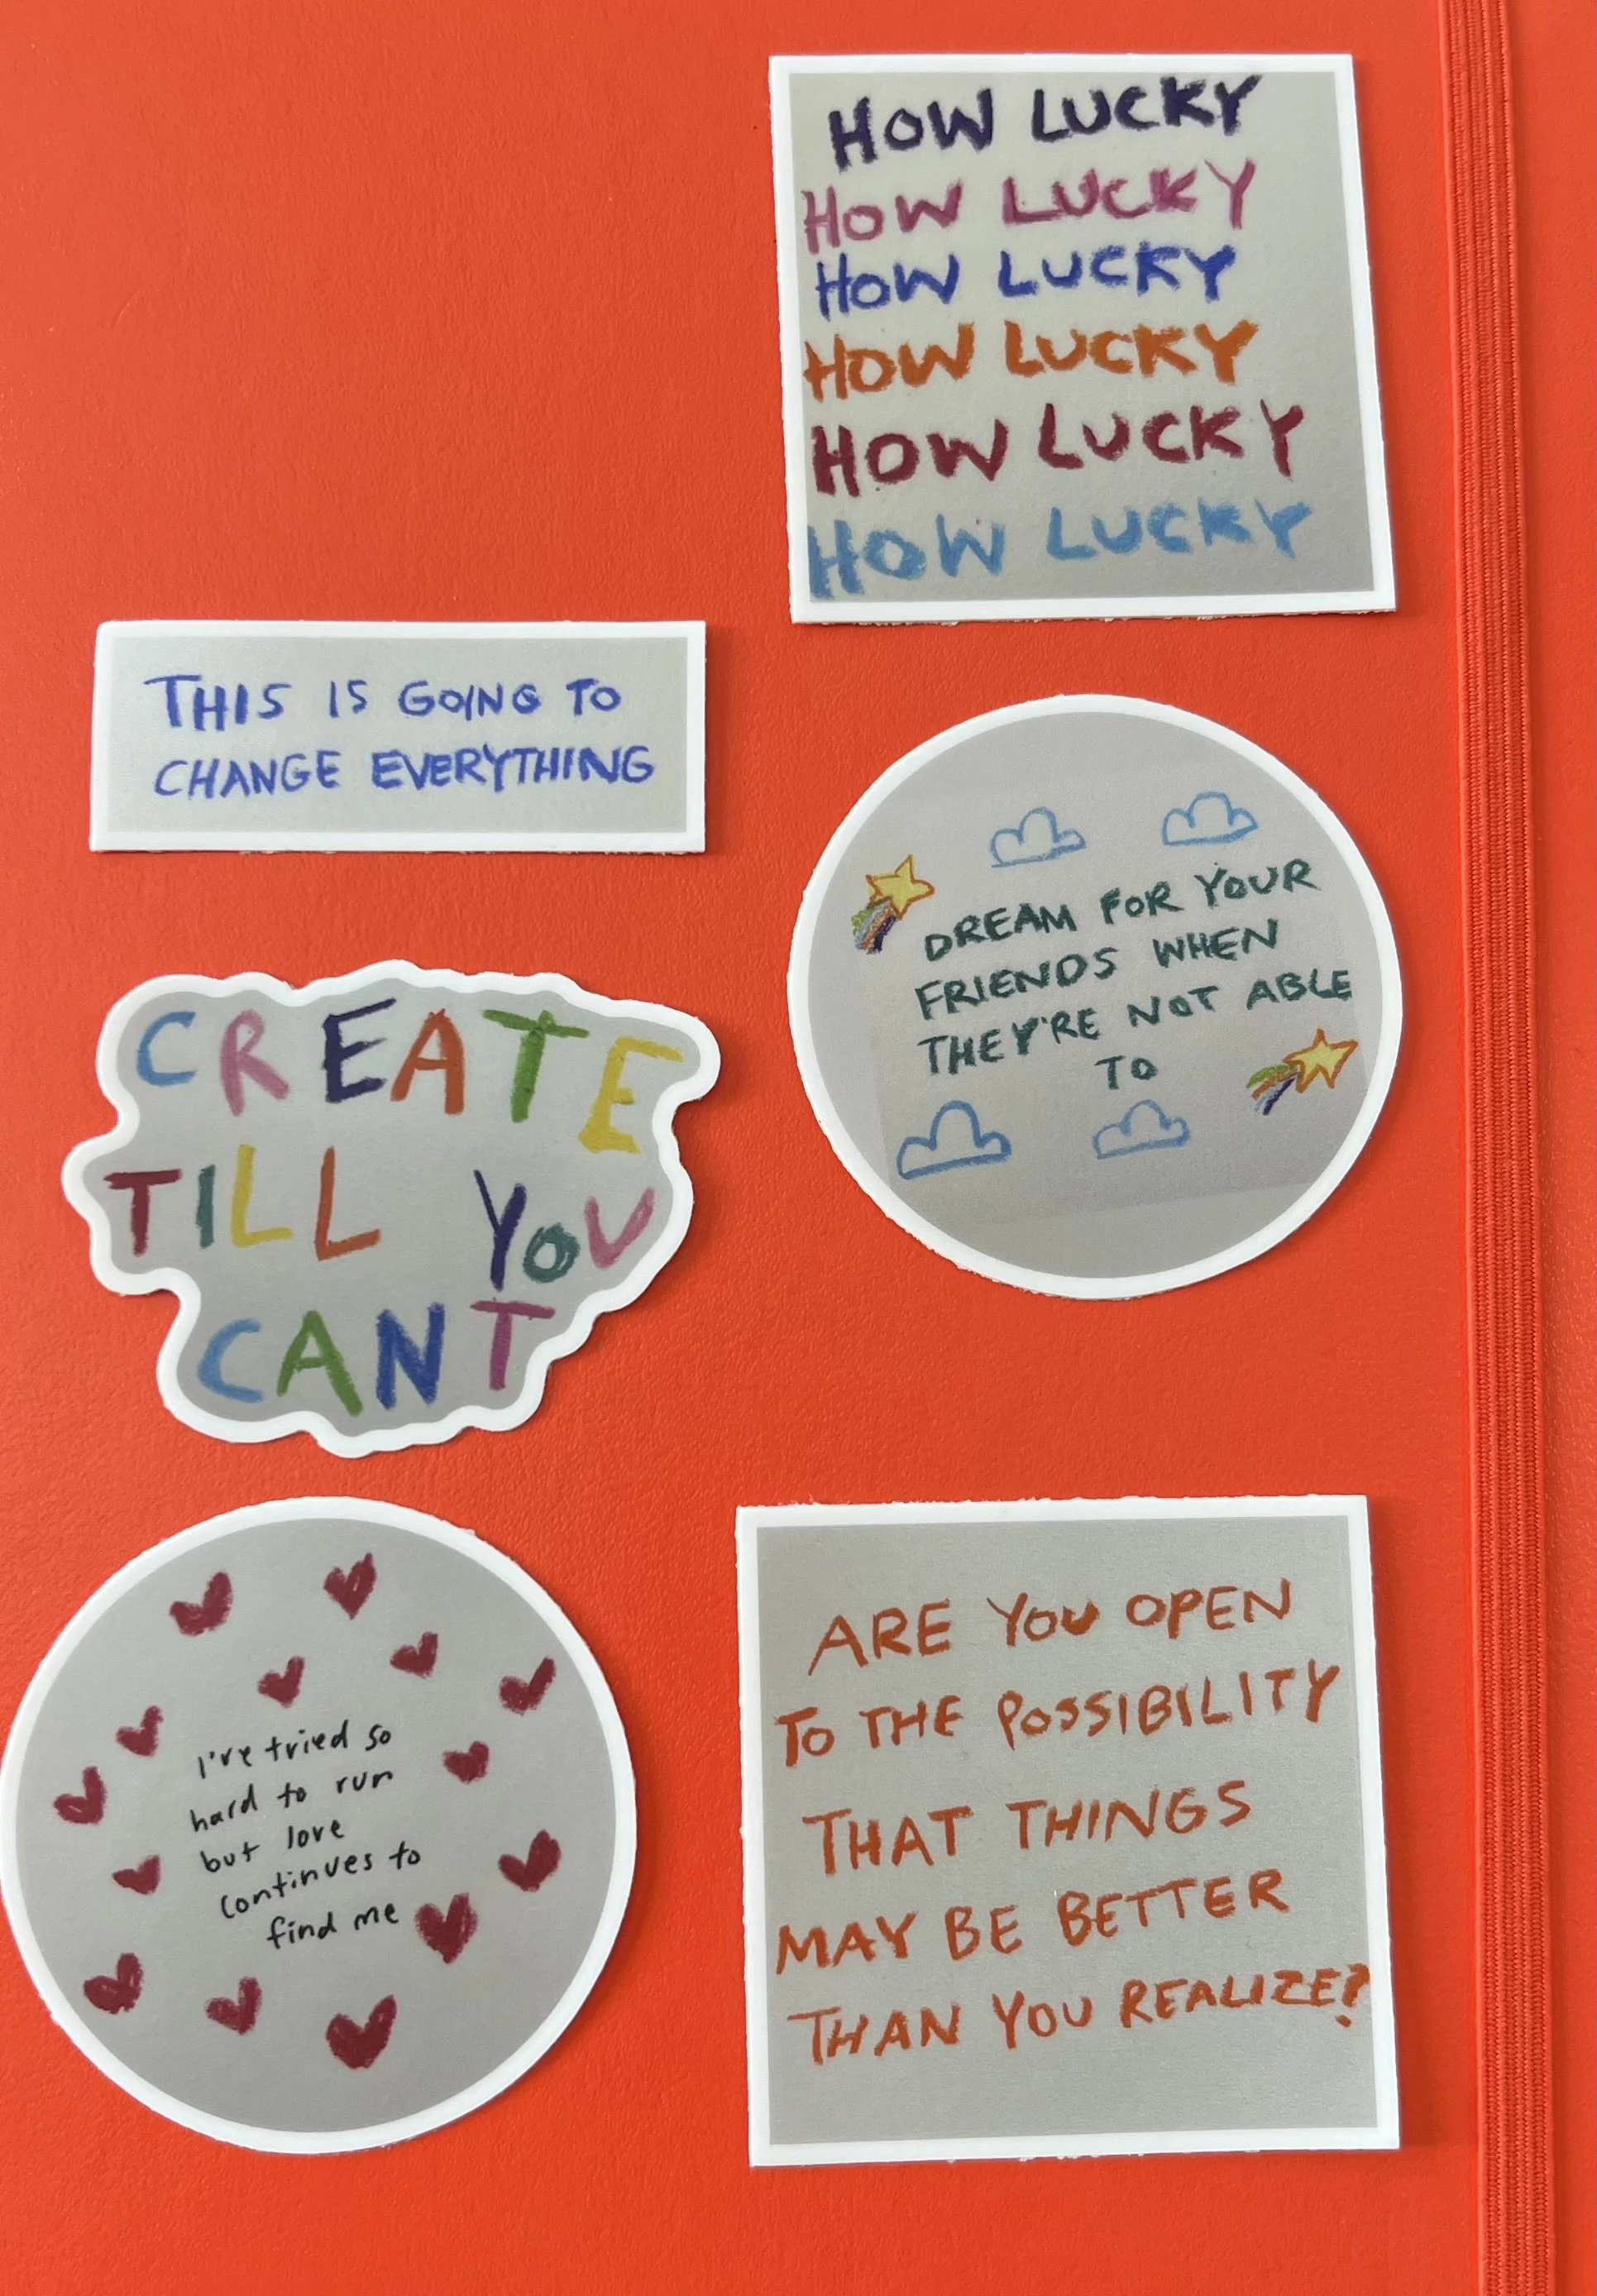 HOW LUCKY
HOW LUCKY
HOW LUCKY
HOW LUCKY
HOW LUCKY
HOW LUCKY
THIS IS GOING TO
CHANGE EVERYTHING
DREAM FOR YOUR
FRIENDS WHEN
THEY'RE NOT ABLE
TO
CREATE
TILL YOU
CANT
I've tried so
hard to run
but love
continues to
find me
ARE YOU OPEN
TO THE POSSIBILITY
THAT THINGS
MAY BE BETTER
THAN YOU REALIZE?